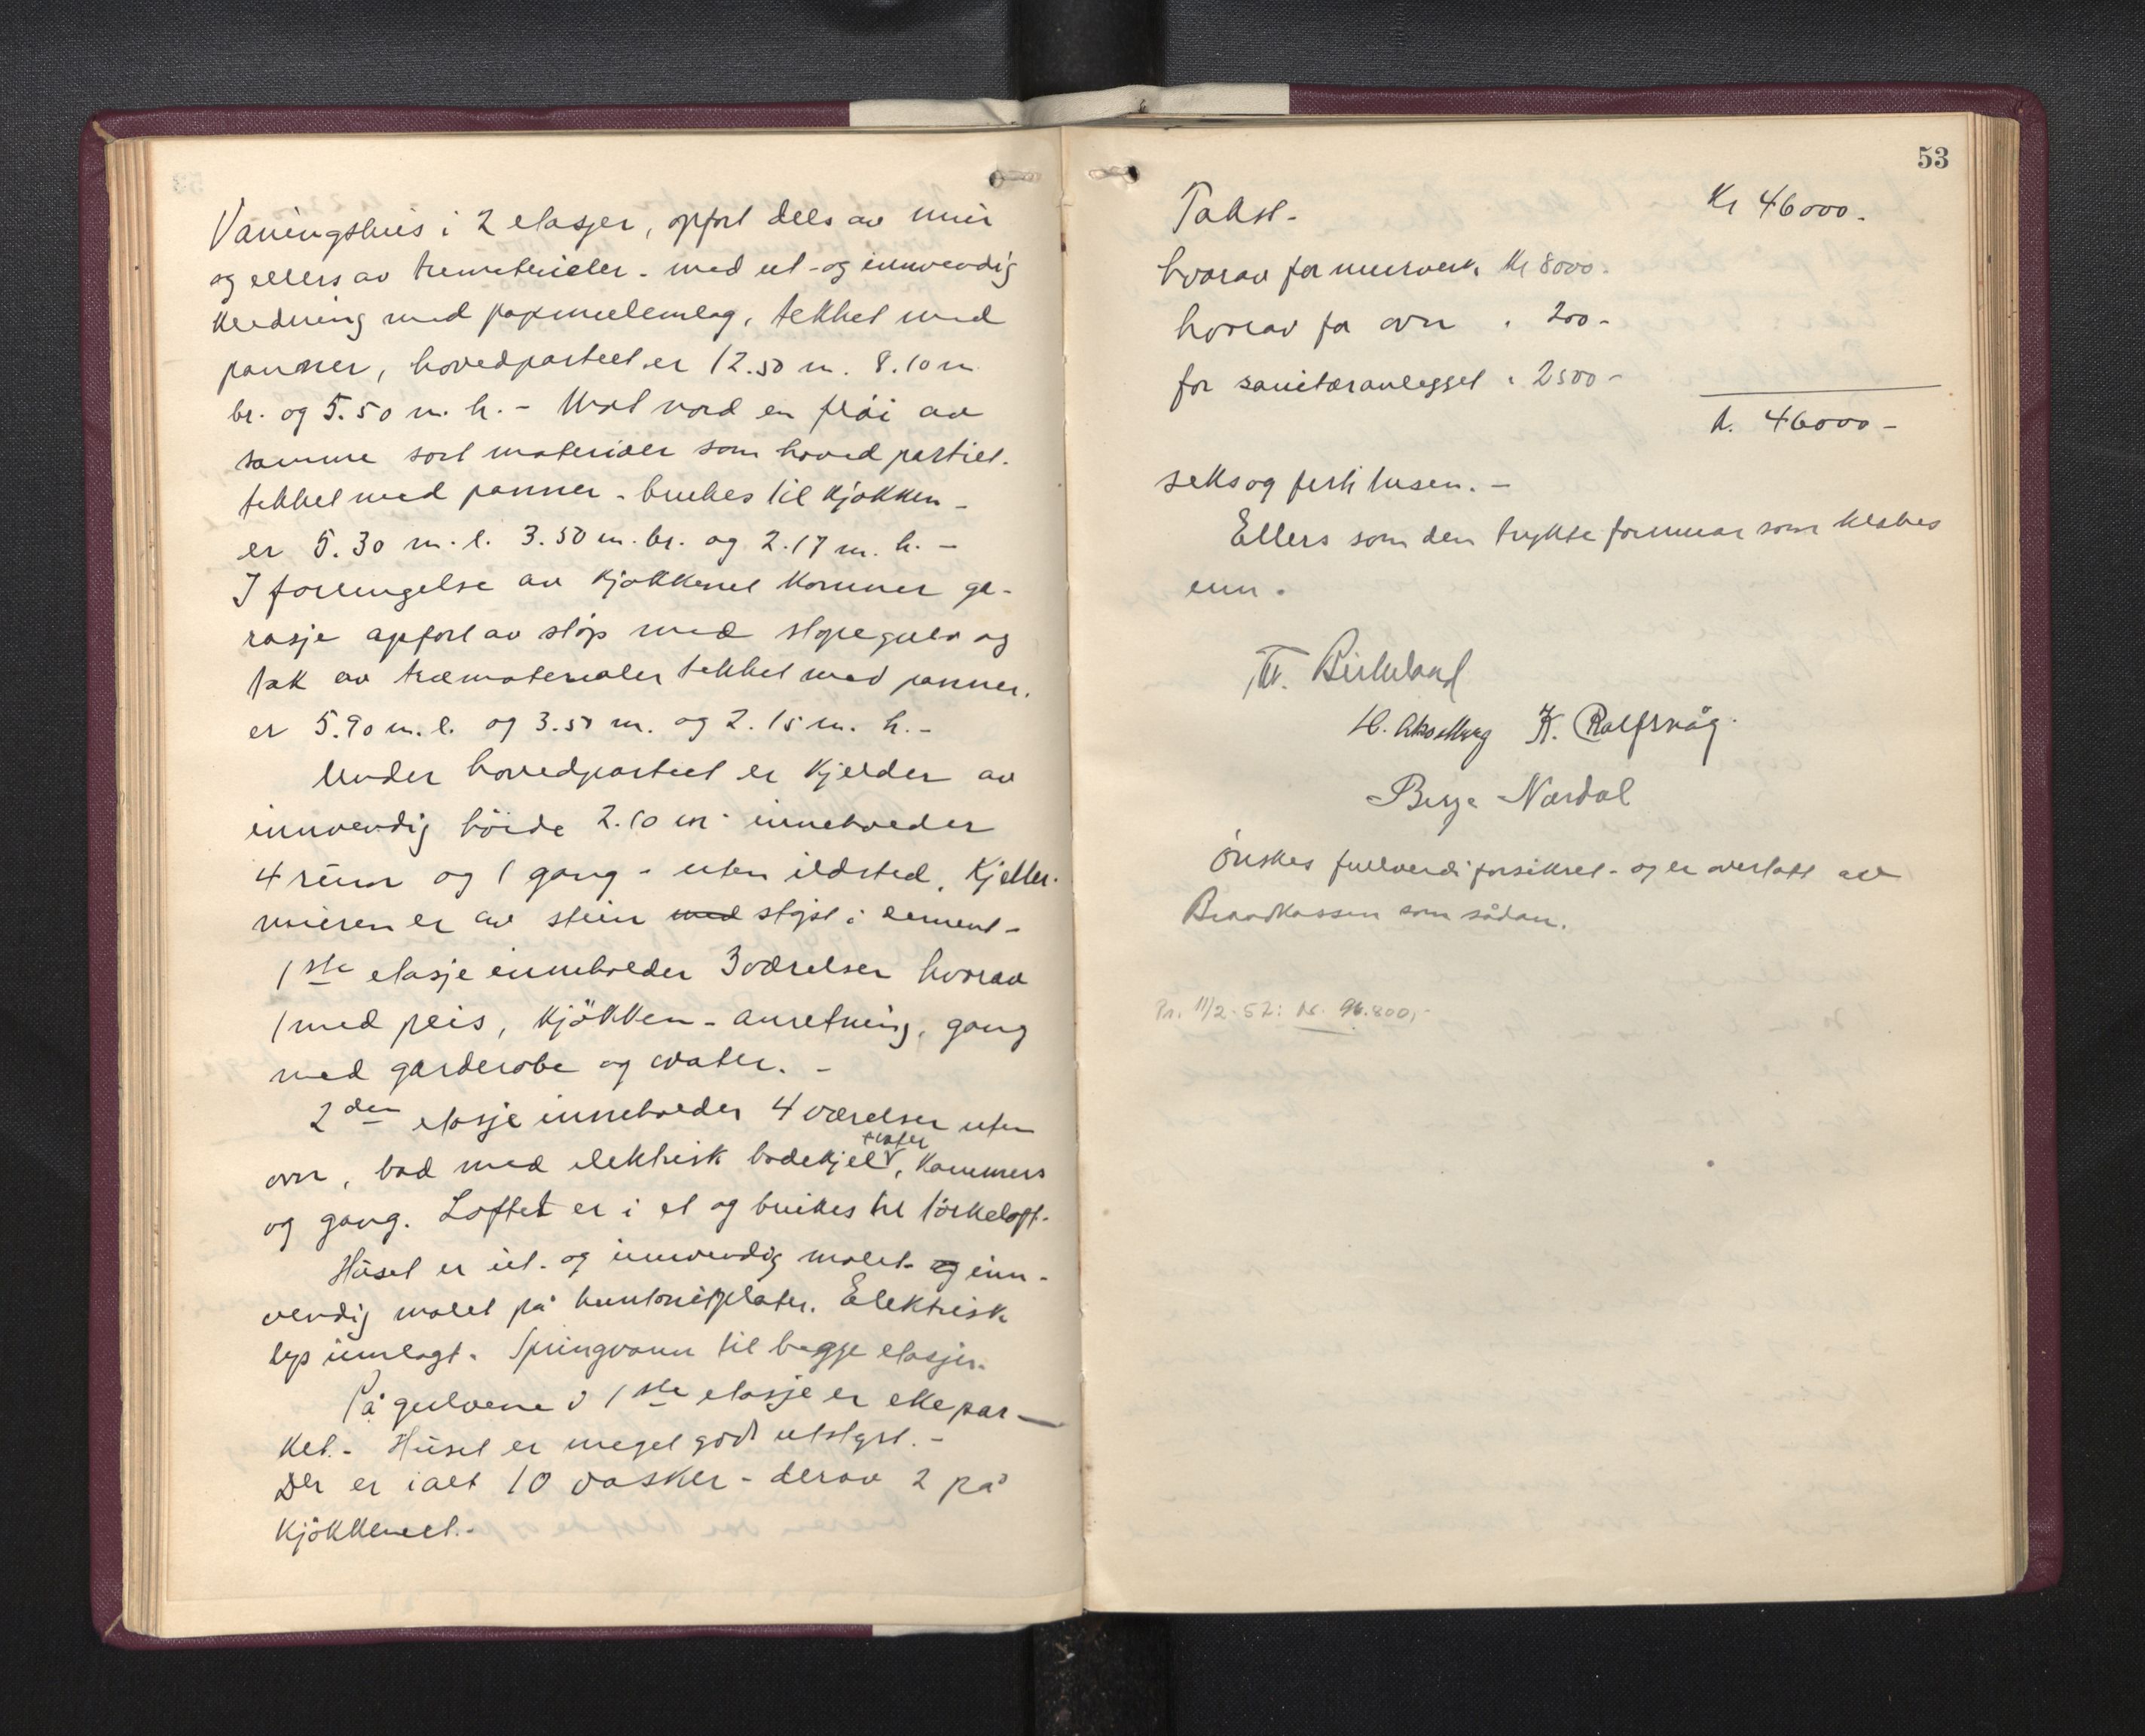 Våningshus i 2 etasjer, opført dels av mur
og ellers av trematerialer - med ut- og innvendig
kledning med papmellemlag, tekket med
panner, hovedpartiet er 12.50 m. 8.10 m
br. og 5.50 m. h. - Mot nord en fløi av
samme sort materialer som hovedpartiet.
tekket med panner - brukes til kjøkken -
er 5.30 m. l. 3.50 m. br. og 2.17 m. h. -
I forlengelse av kjøkkenet kommer ga-
rasje opført av støp med støpegulv og
tak av træmaterialer tekket med panner.
er 5.90 m. l. og 3.50 m. og 2.15 m. h. -
Under hovedpartiet er kjelder av
innvendig höide 2.10 m - inneholder
4 rum og 1 gang - uten ildsted. Kjeller-
muren er av stein med støpt i cement -
1ste etasje inneholder 3 værelser hvorav
1 med peis, kjökken - anretning, gang
med garderobe og vater. -
2den etasje inneholder 4 værelser uten
ovn, bad med elektrisk badekjel, vater, kammers
og gang. Loftet er i et og brukes til törkeloft.
Huset er ut- og innvendig malet - og inn-
vendig malet på huntonitplater. Elektrisk
lys innlagt. Springvann til begge etasjer.
På gulvene i 1ste etasje er ekepar-
ket. - Huset er meget godt utstyrt. -
Der er ialt 10 vasker - derav 2 på
kjökkenet. -
53
Takst - Kr 46000.
hvorav for murverk Kr 8000.
hvorav for ovn " 200 -
for sanitæranlegget " 2500 -
Kr. 46000 -
seks og førti tusen. -
Ellers som den trykte formular som klebes
inn.
M. Birkeland
K. Rolfsvåg.
Berge Nordal
Ønskes fullverdiforsikret - og er overlatt av
Brandkassen som sådan.
Pr. 11/2-52: kr. 96.800,-